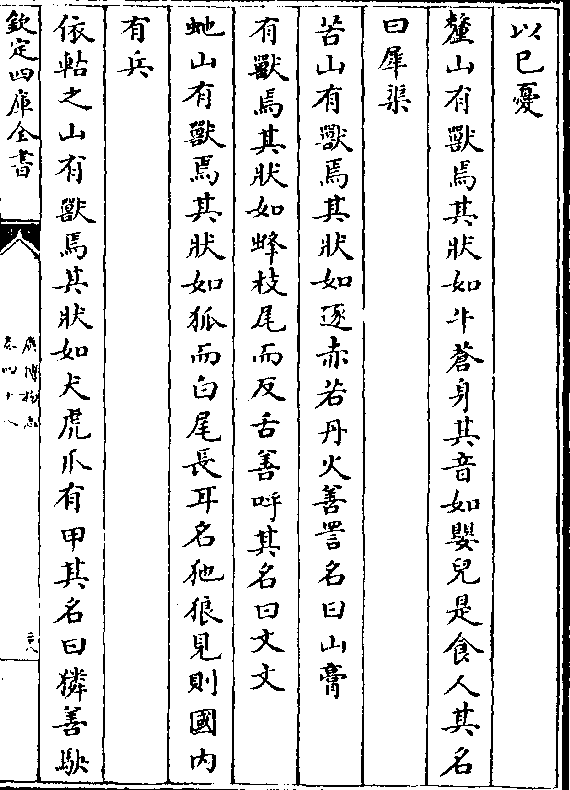 以已憂
釐山有獸焉其狀如牛蒼身其音如嬰兒是食人其名
曰犀渠
苦山有獸焉其狀如逐赤若丹火善詈名曰山膏
有獸焉其狀如蜂枝尾而反舌善呼其名曰文文
虵山有獸焉其狀如狐而白尾長耳名狏狼見則國内
有兵
依軲之山有獸焉其狀如犬虎爪有甲其名曰獜善駚
欽定四庫全書
廣博物志
卷四十八